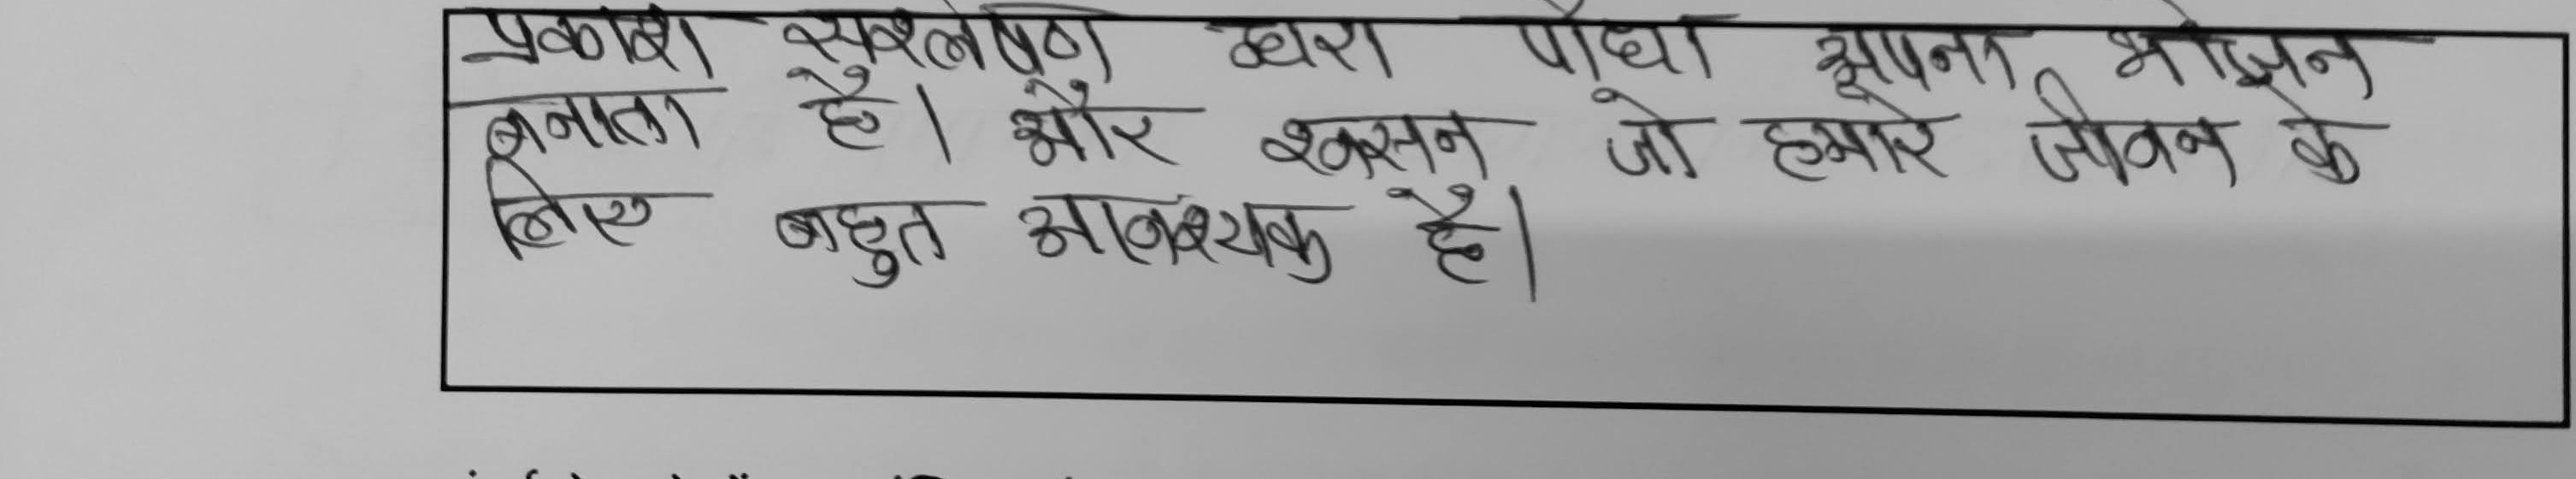 प्रकाश संश्लेषण द्वारा पौधा अपना भोजन
बनाता है। और श्वसन जो हमारे जीवन के
लिए बहुत आवश्यक है।